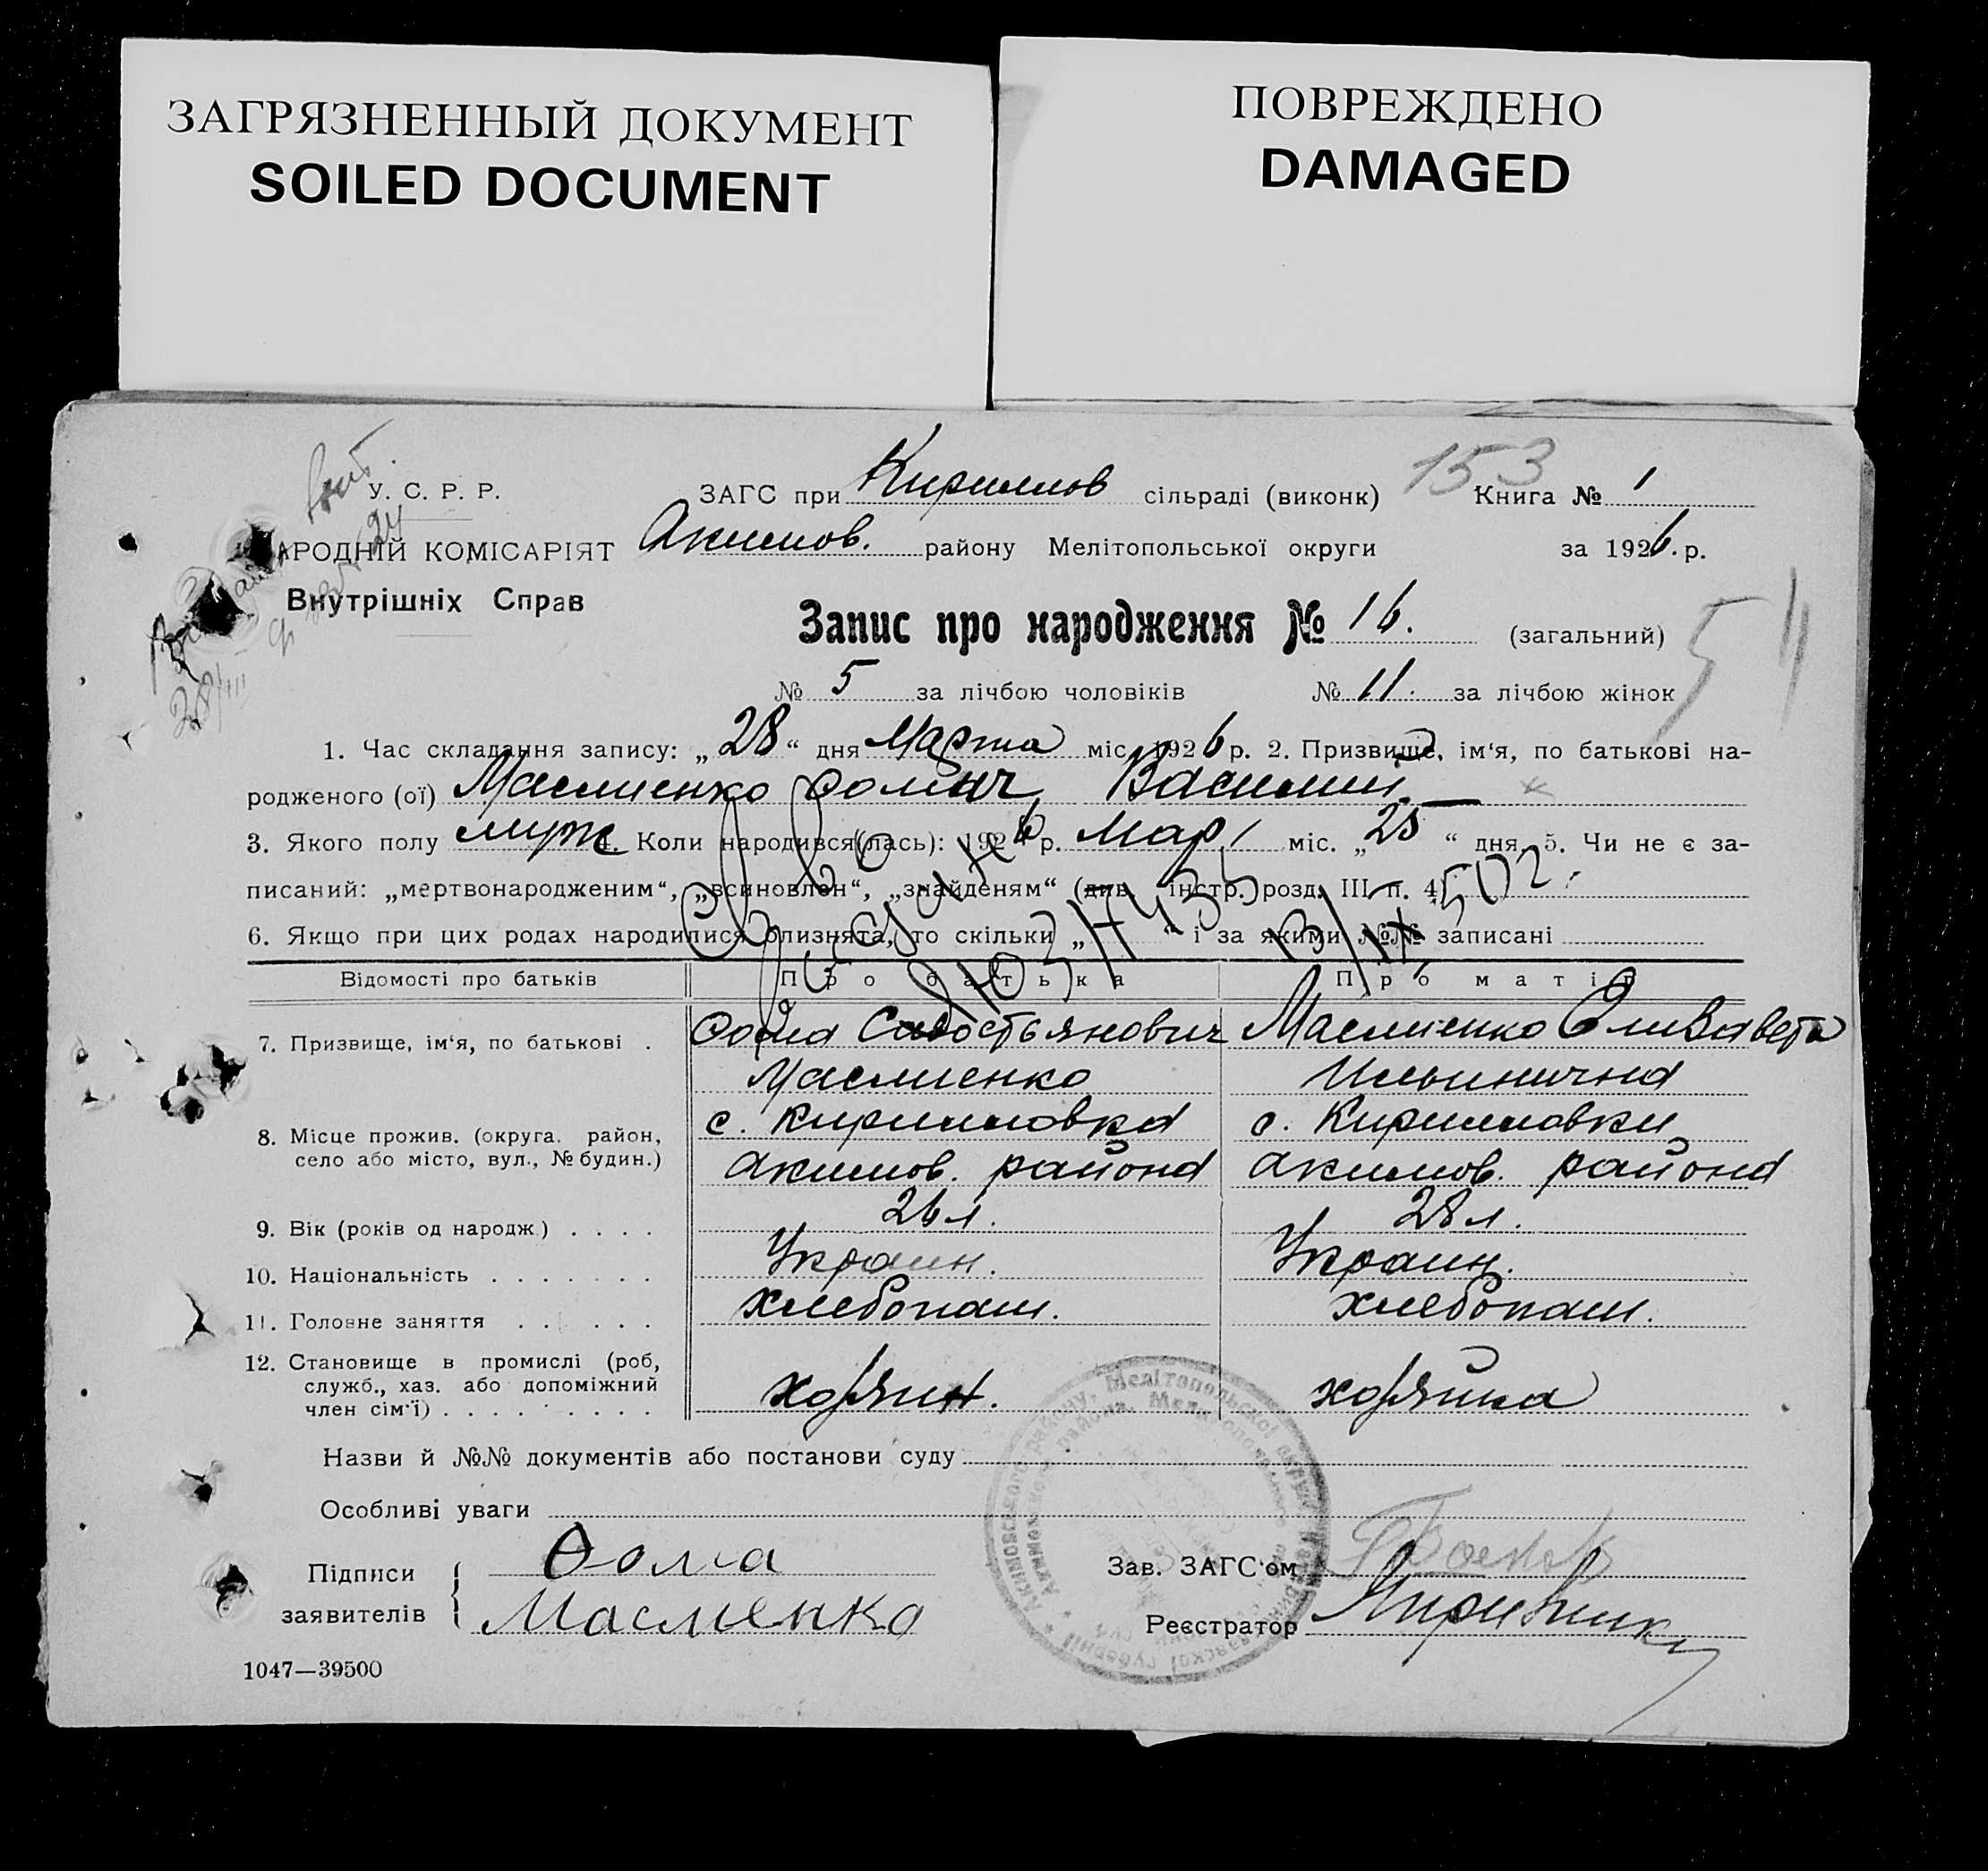 ЗАГРЯЗНЕННЫЙ ДОКУМЕНТ
SOILED DOCUMENT
ПОВРЕЖДЕНО
DAMAGED
У. С. Р. Р.
ЗАГС при Кирилов сільраді (виконк) 153 Книга № 1
АРОДНІЙ КОМІСАРІЯТ Акимов. району Мелітопольської округи за 1926. р.
Внутрішніх Справ
Запис про народження № 16. (загальний)
№ 5 за лічбою чоловіків № 11. за лічбою жінок
1. Час складання запису: „28“ дня Марта міс. 1926 р. 2. Призвище, ім‘я, по батькові на-
родженого (ої) Маслиенко Фомич, Василий
3. Якого полу муж 4. Коли народився(лась): 1926 р. Мар, міс. „25“ дня. 5. Чи не є за-
писаний: „мертвонародженим“, „всиновлен“, „знайденям“ (див. інстр. розд. III п. 4)
6. Якщо при цих родах народилися близнята, то скільки „ “ і за якими №№ записані
Відомості про батьків Про батька Про матір
7. Призвище, ім‘я, по батькові . Фома Савостьянович Маслиенко Елизавета
Маслиенко Ильинична
8. Місце прожив. (округа. район, с. Кирилловка с. Кирилловки
село або місто, вул., № будин.) Акимов. района Акимов. района
9. Вік (років од народж.) . . . . 26 л. 28 л.
10. Національність . . . . . . . Украин. Украин.
11. Головне заняття . . . . . . Хлебопаш. Хлебопаш.
12. Становище в промислі (роб,
служб., хаз. або допоміжний
член сім‘ї) . . . . . . . . . Хозяин. Хозяйка
Назви й №№ документів або постанови суду
Особливі уваги
Підписи Фома Зав. ЗАГС‘ом
заявителів Масленко Реєстратор
1047—39500